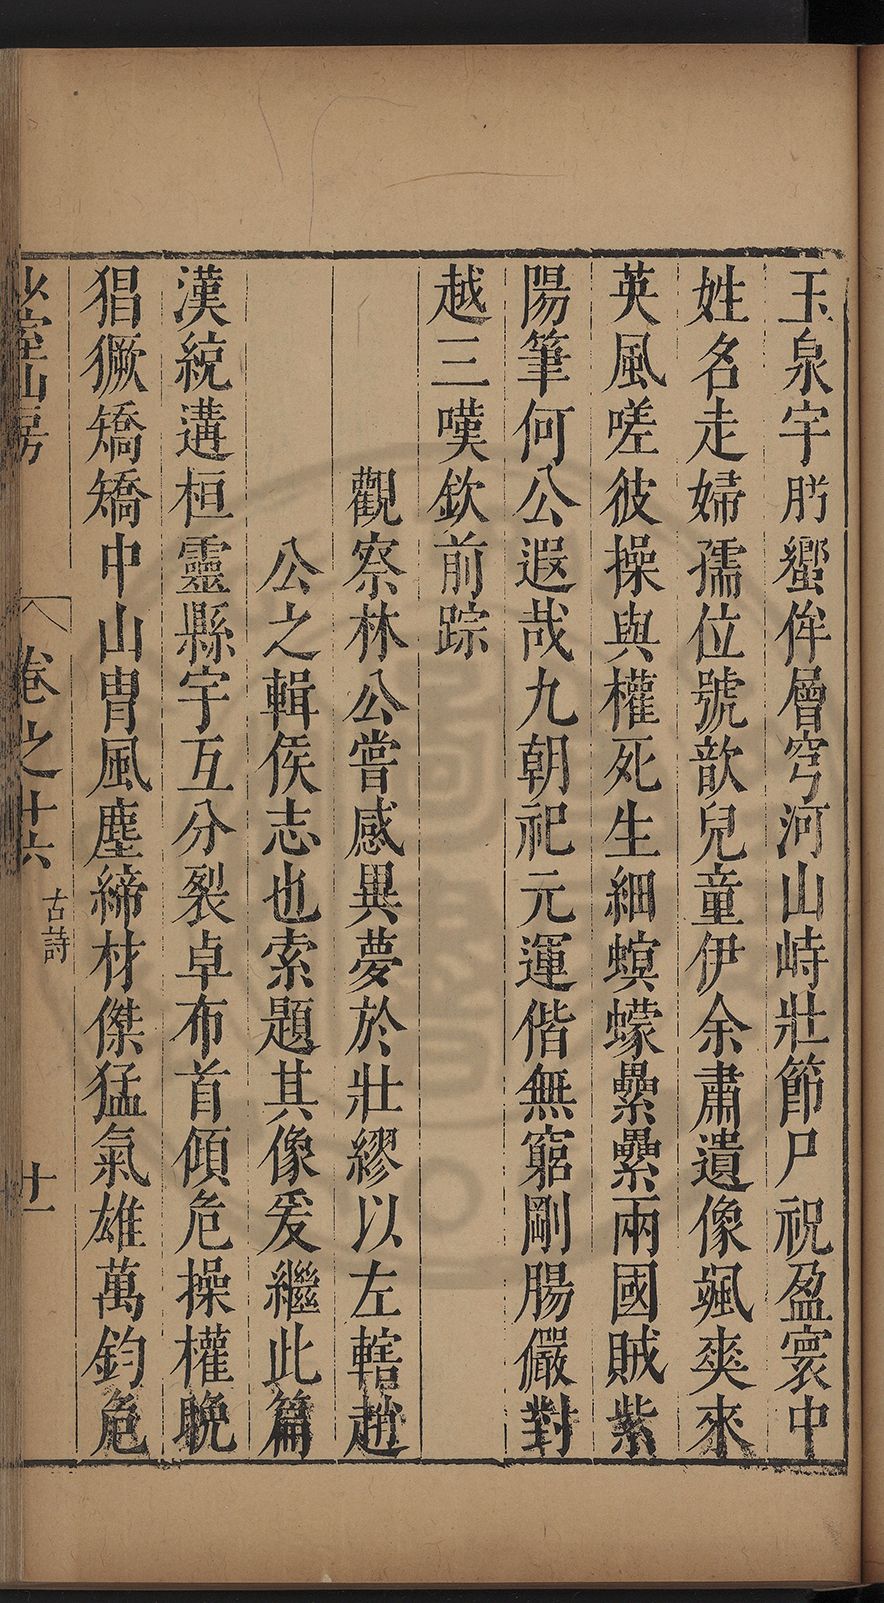 玉泉宇肹蠁侔層穹河山峙壯節尸祝盈寰中
姓名走婦孺位號歆兒童伊余肅遺像颯爽來
英風嗟彼操與權死生細螟蠓纍纍兩國賊紫
陽筆何公遐哉九朝祀元運偕無窮剛腸儼對
越三嘆欽前踪
觀察林公嘗感異夢於壯繆以左轄趙
公之輯侯志也索題其像爰繼此篇
漢統遘桓靈縣宇互分裂卓布首傾危操權晚
猖獗矯矯中山胄風塵締材傑猛氣雄萬鈞危
少室山房
卷之十六
古詩
十一